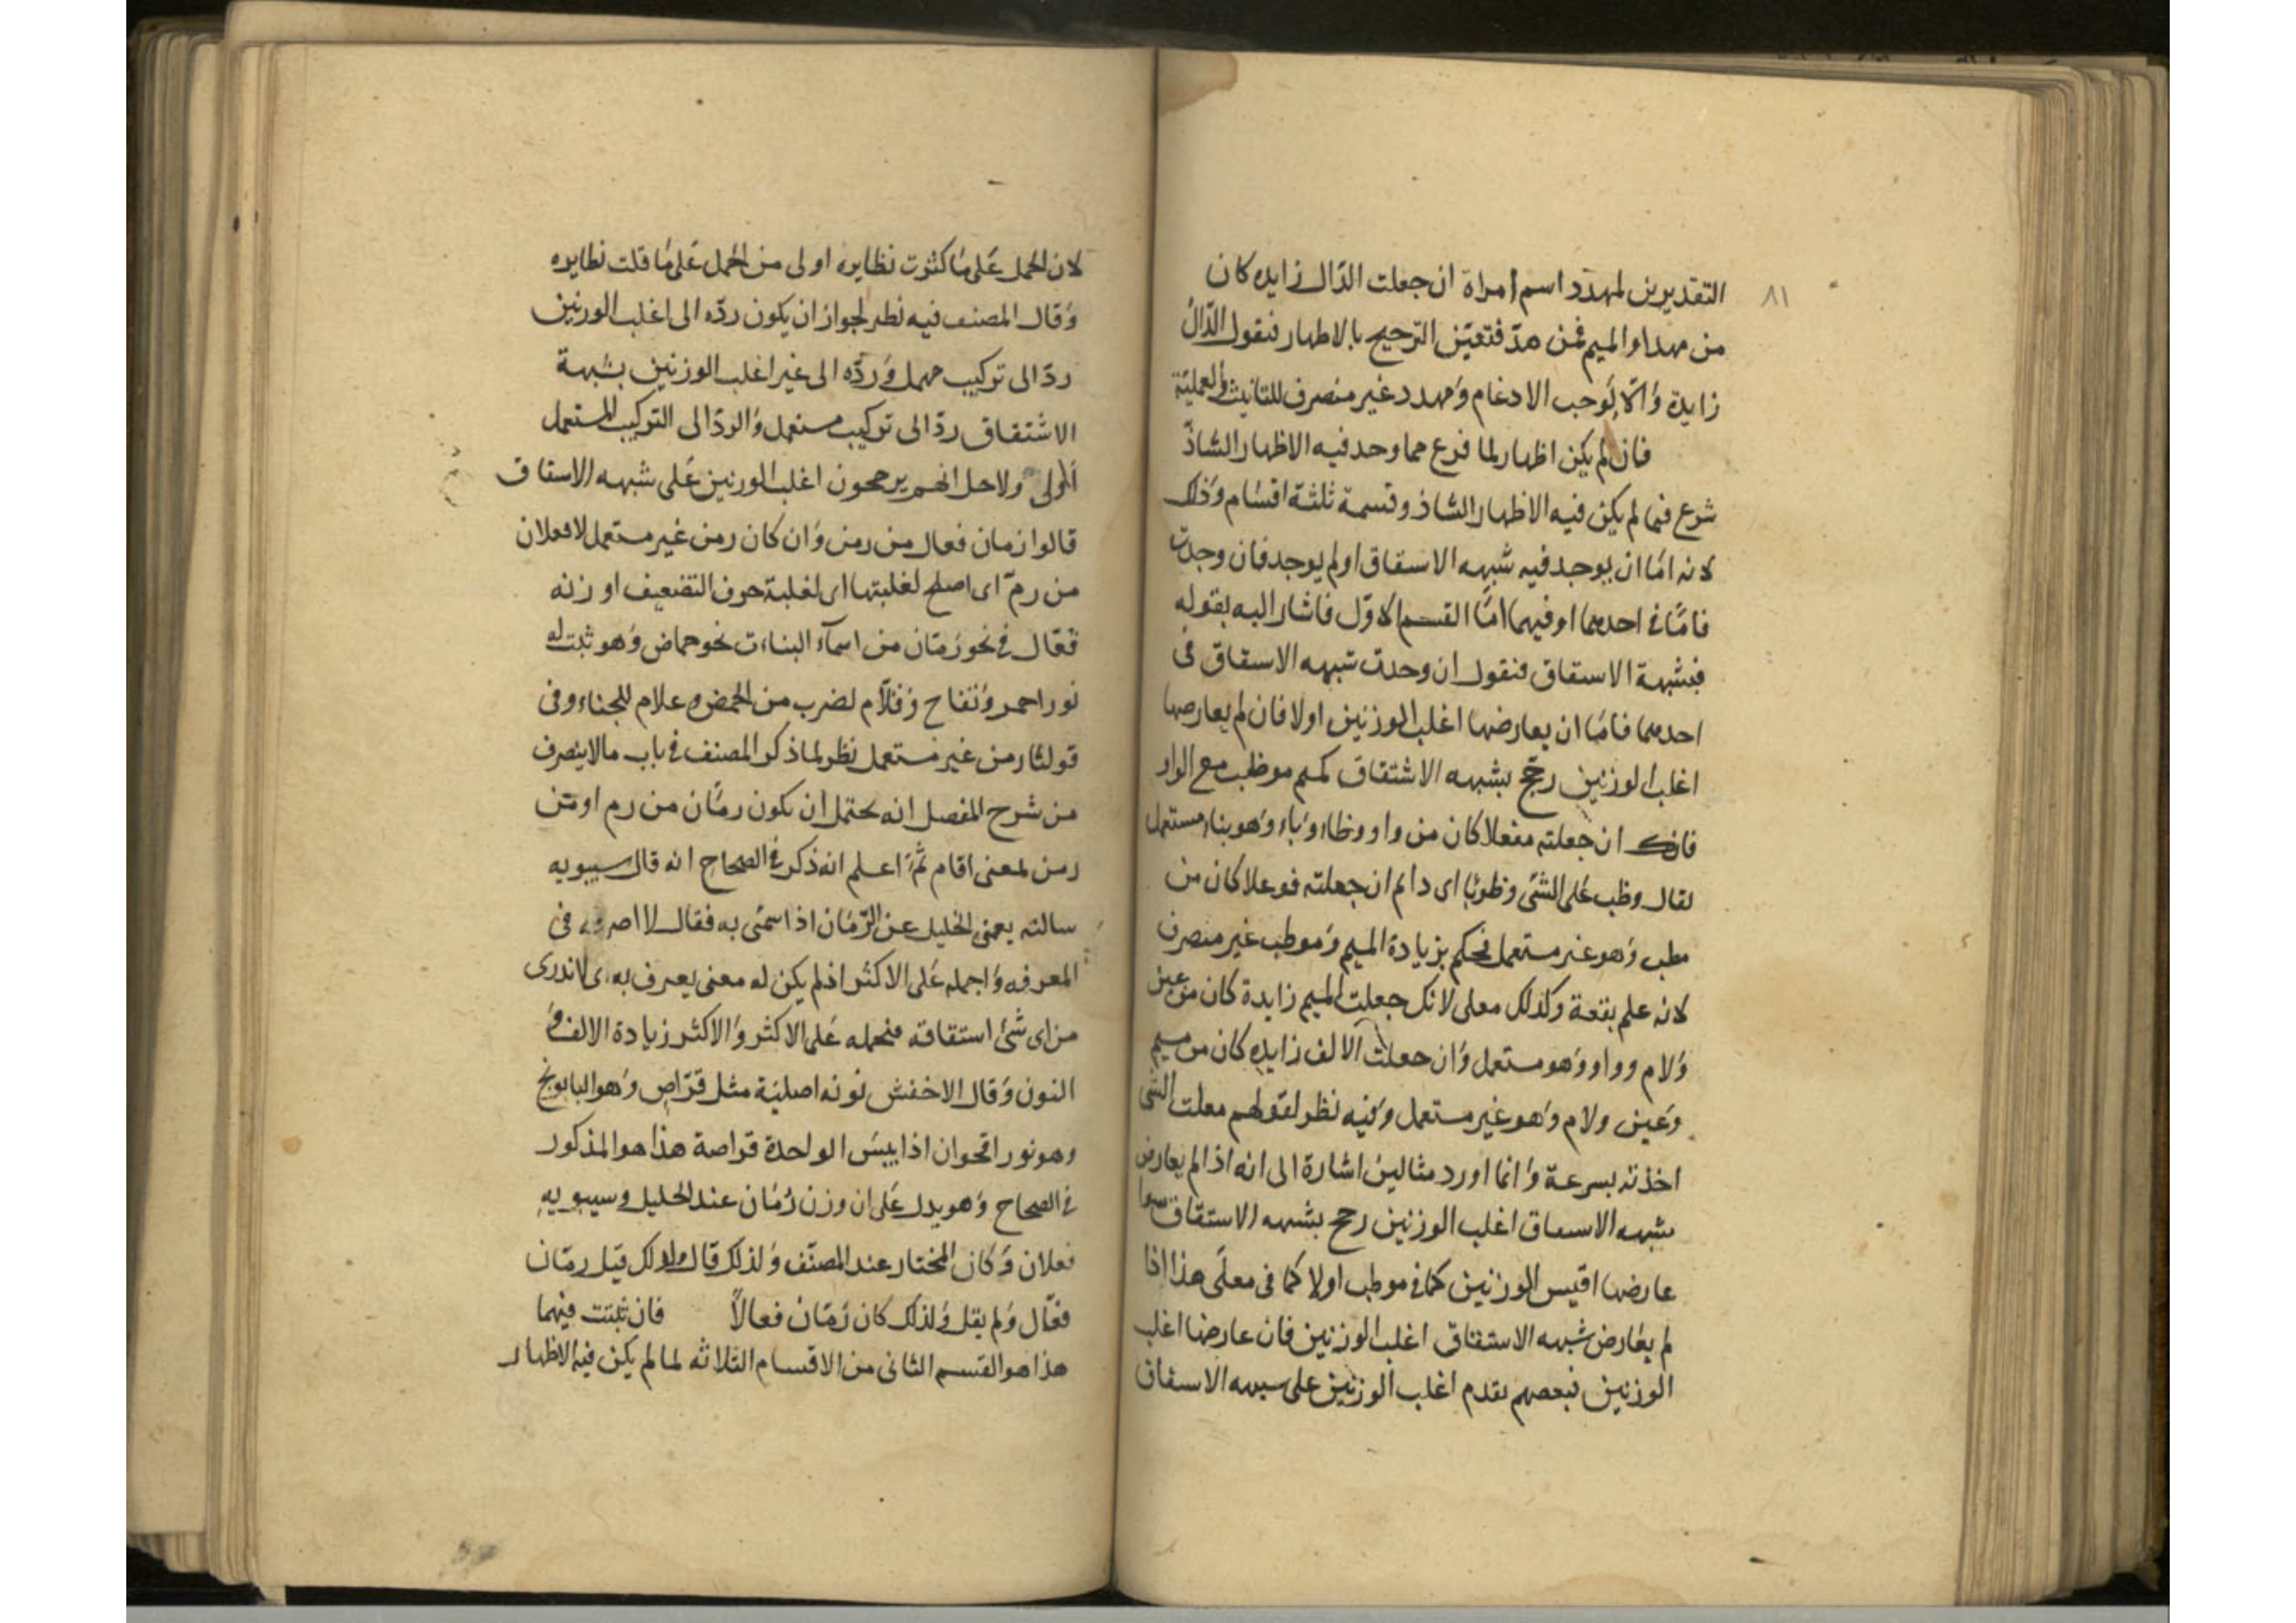 ٨١
التقديرين لمهدد اسم امراة ان جعلت الدّال زايده كان
من مهد او الميم فمن هدّ فتعيّن الترجيح بالاظهار فنقول الدّالُ
زايدة وَالّا لَوجب الادغام وَمهدد غير منصرف للتانيث والعلميّة
فان لم يكن اظهار لما فرغ مما وجد فيه الاظهار الشاذّ
شرع فيما لم يكن فيه الاظهار الشاذ وقسمة ثلثة اقسام وَذلك
لانه امّا ان يوجد فيه شبهه الاشتقاق او لم يوجد فان وجدت
فامّا في احدهما او فيهما امّا القسم الاوّل فاشار اليه بقوله
فبشبهة الاشتقاق فنقول ان وجدت شبهه الاشتقاق في
احدهما فامّا ان يعارضها اغلب الوزنين اولا فان لم يعارضها
اغلب الوزنين رجّح بشبهه الاشتقاق كميم موظب مع الواو
فانك ان جعلته مفعلا كان من واو وظاء وَباء وَهو بناء مستعمل
يقال وظب على الشئ وظوبًا اى دام ان جعلته فوعلا كان من
مظب وَهو غير مستعمل فحكم بزيادة الميم وَموظب غير منصرف
لانه علم بقعة وكذلك معلى لانك جعلت الميم زايدة كان من عين
وَلام وواو وَهو مستعمل وَان جعلت الالف زايده كان من ميم
وَعين ولام وَهو غير مستعمل وَفيه نظر لقولهم معلت الشئ
اخذته بسرعة وَانما اورد مثالين اشارة الى انه اذا لم يعارض
شبهه الاشتقاق اغلب الوزنين رجح بشبهه الاشتقاق سوا
عارضها اقيس الوزنين كما في موظب اولا كما في معلَى هذا اذا
لم يعارض شبهه الاشتقاق اغلب الوزنين فان عارضها اغلب
الوزنين فبعضهم يقدم اغلب الوزنين على شبهه الاشتقاق
لان الحمل عَلى مَا كثرت نظايره اولى من الحمل عَلى مَا قلت نظايره
وَقال المصنف فيه نظر لجواز ان يكون ردّه الى اغلب الوزنين
ردّ الى تركيب مهمل وَردّه الى غير اغلب الوزنين بشبهة
الاشتقاق ردّ الى تركيب مستعمل وَالردّ الى التركيب المستعمل
اولى ولاجل انهم يرجحون اغلب الوزنين عَلى شبهه الاشتقاق
قالوا رمان فعال من رمن وَان كان رمن غير مستعمل لا فعلان
من رمّ اى اصلح لغلبتها اى لغلبة حرف التضعيف او زنه
فعّال في نحو رُمّان من اسمآء النباءت نحو حماض وَهو نبت له
نور احمر وَتفاح وَقلّام لضرب من الحمض وعلام للحناء وفى
قولنا رمن غير مستعمل نظر لما ذكر المصنف في باب مالا ينصرف
من شرح المفصل انه يحتمل ان يكون رمَّان من رم او من
رمن بمعنى اقام ثُمَّ اعلم انه ذكر في الصحاح انه قال سيبويه
سالته يعنى الخليل عن الرّمَان اذا سمّى به فقال لا اصرفه فى
المعرفه وَاحمله عَلى الاكثر اذ لم يكن له معنى يعرف به اى لا ندرى
من اى شئ اشتقاقه فنحمله عَلى الاكثر وَالاكثر زيادة الالف وَ
النون وَقال الاخفش نونه اصليَة مثل قرّاص وَهو البابونج
وهو نور اقحوان اذا يبسَ الواحدة قراصة هذا هو المذكور
في الصحاح وَهو يدل عَلى ان وزن رُمَان عند الخليل وسيبويه
فعلان وَكان المختار عند المصنّف وَلذلك قال ولذلك قيل رمّان
فعّال وَلم يقل وَلذلك كان رُمّان فعالاً فان ثبتت فيهما
هذا هو القسم الثانى من الاقسام الثلاثه لما لم يكن فيه الاظهار